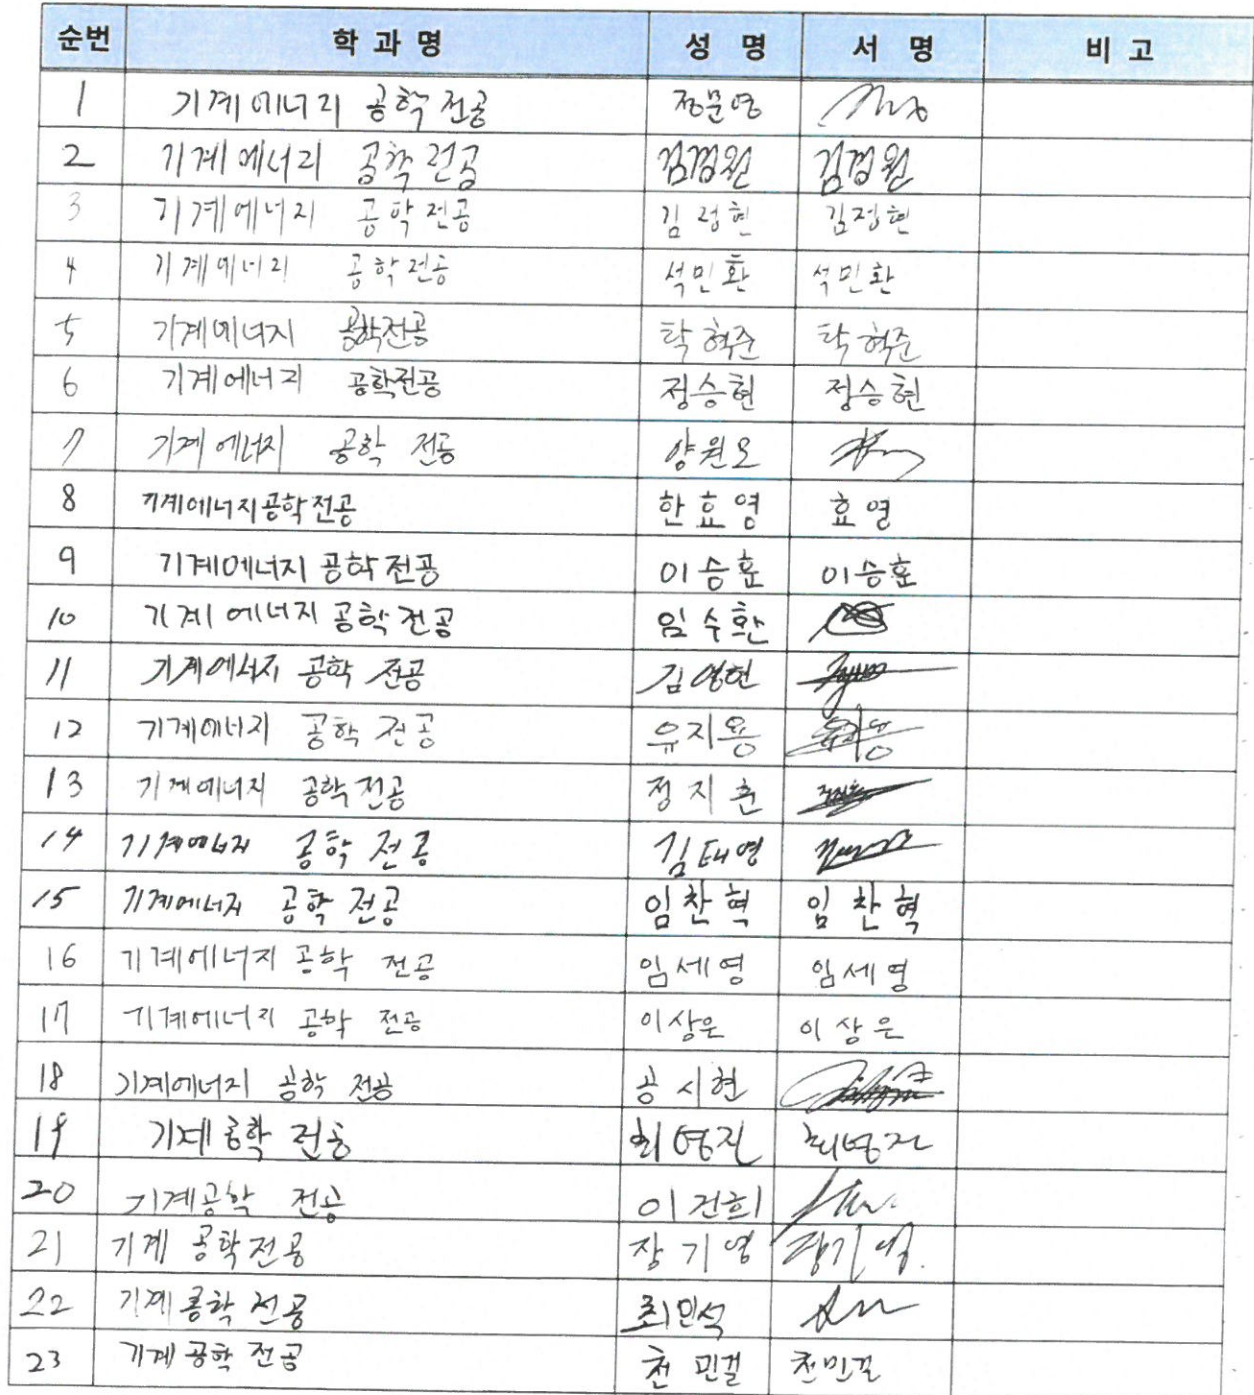 순번 학과명 성명 서명 비고
1 기계에너지 공학 전공 정문영
2 기계에너지 공학 전공 김경원 김경원
3 기계에너지 공학전공 김정현 김정현
4 기계에너지 공학전공 석민환 석민환
5 기계에너지 공학전공 탁혁준 탁혁준
6 기계에너지 공학전공 정승현 정승현
7 기계에너지 공학 전공 양원모
8 기계에너지공학전공 한효영 효영
9 기계에너지 공학전공 이승훈 이승훈
10 기계에너지 공학전공 임수환
11 기계에너지 공학 전공 김영헌
12 기계에너지 공학 전공 유지용
13 기계에너지 공학전공 정지훈
14 기계에너지 공학 전공 김태영
15 기계에너지 공학 전공 임찬혁 임찬혁
16 기계에너지 공학 전공 임세영 임세영
17 기계에너지 공학 전공 이상은 이상은
18 기계에너지 공학 전공 공시현
19 기계공학 전공 최영진 최영진
20 기계공학 전공 이건희
21 기계 공학전공 장기영 장기영
22 기계공학 전공 최민석
23 기계공학 전공 천민걸 천민걸